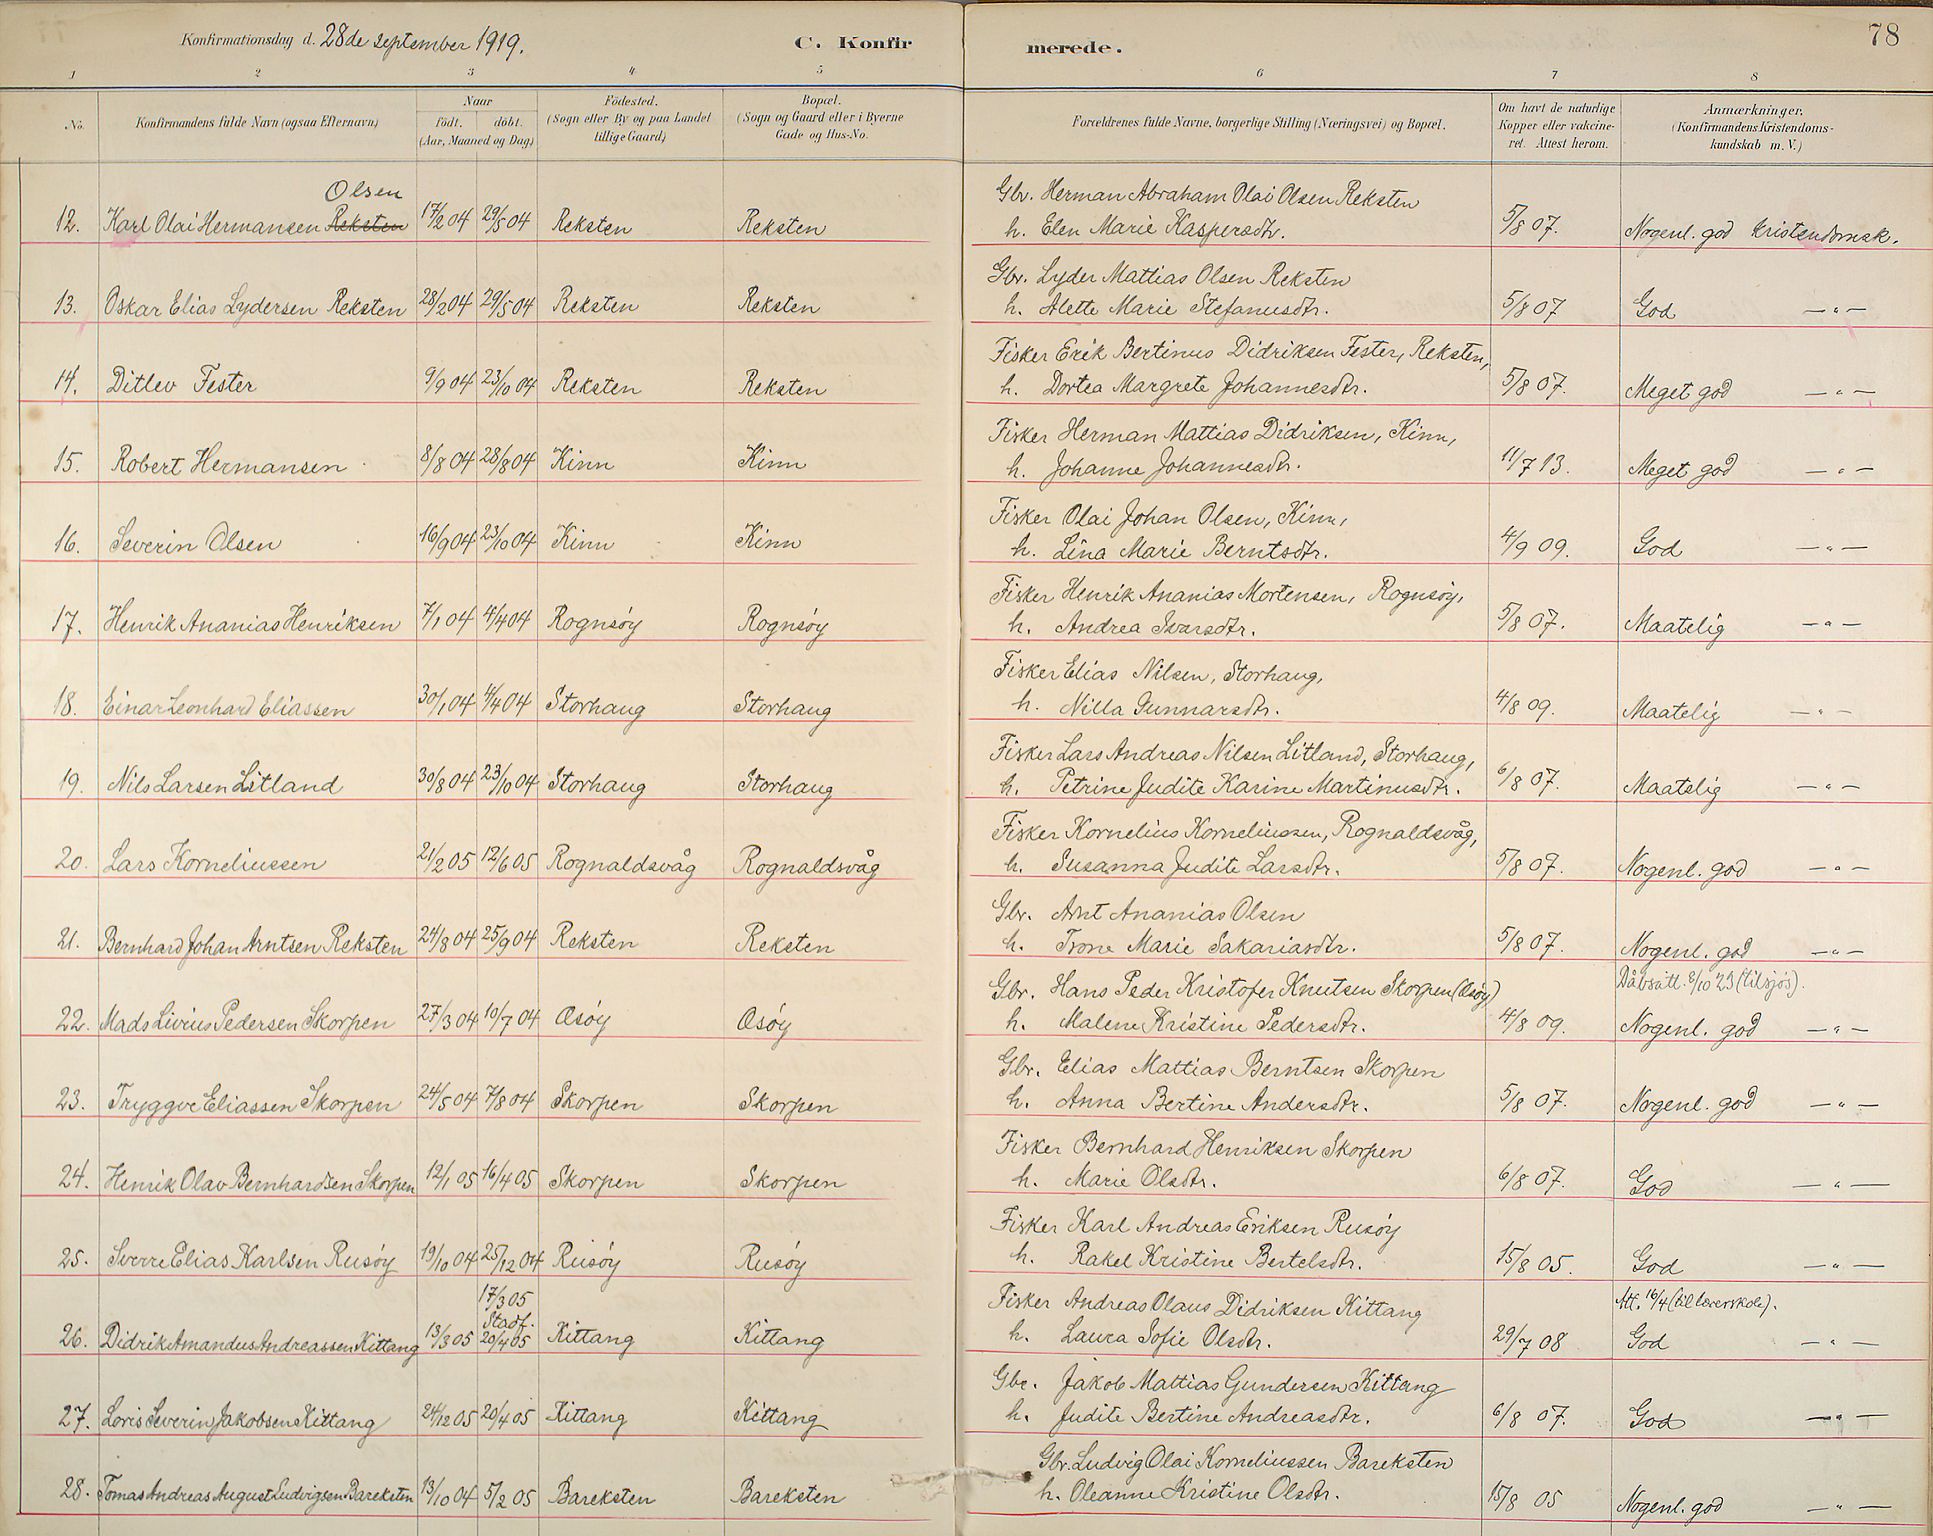 Konfirmationsdag d. 28de september 1919.
C. Konfirmerede.
78
1 2 3 4 5 6 7 8
No.
Konfirmandens fulde Navn (ogsaa Efternavn)
Naar
födt. döbt.
(Aar, Maaned og Dag)
Födested.
(Sogn eller By og paa Landet
tillige Gaard)
Bopæl.
(Sogn og Gaard eller i Byerne
Gade og Hus-No.
Forældrenes fulde Navne, borgerlige Stilling (Næringsvei) og Bopæl.
Om havt de naturlige
Kopper eller vakcine-
ret. Attest herom.
Anmærkninger.
(Konfirmandens Kristendoms-
kundskab m. V.)
Olsen
Gbr. Herman Abraham Olai Olsen Reksten
12. Karl Olai Hermansen Reksten 17/2 04 29/5 04 Reksten Reksten h. Elen Marie Kaspersdtr. 5/8 07. Nogenl. god Kristendomsk.
Gbr. Lyder Mattias Olsen Reksten
13. Oskar Elias Lydersen Reksten 28/2 04 29/5 04 Reksten Reksten h. Alette Marie Stefanusdtr. 5/8 07 God —"—
Fisker Erik Bertinus Didriksen Fester, Reksten,
14. Ditlev Fester 9/9 04 23/10 04 Reksten Reksten h. Dortea Margrete Johannesdtr. 5/8 07. Meget god —"—
Fisker Herman Mattias Didriksen, Kinn,
15. Robert Hermansen 8/8 04 28/8 04 Kinn Kinn h. Johanne Johannesdtr. 11/7 13. Meget god —"—
Fisker Olai Johan Olsen, Kinn,
16. Severin Olsen 16/9 04 23/10 04 Kinn Kinn h. Lina Marie Berntsdtr. 4/9 09. God —"—
Fisker Henrik Ananias Mortensen, Rognsöy,
17. Henrik Ananias Henriksen 7/1 04 4/4 04 Rognsöy Rognsöy h. Andrea Ivarsdtr. 5/8 07. Maatelig —"—
Fisker Elias Nilsen, Storhaug,
18. Einar Leonhard Eliassen 30/1 04 4/4 04 Storhaug Storhaug h. Nilla Gunnarsdtr. 4/8 09. Maatelig —"—
Fisker Lars Andreas Nilsen Litland, Storhaug,
19. Nils Larsen Litland 30/8 04 23/10 04 Storhaug Storhaug h. Petrine Judite Karine Martinusdtr. 6/8 07. Maatelig —"—
Fisker Kornelius Korneliussen, Rognaldsvåg,
20. Lars Korneliussen 21/2 05 12/6 05 Rognaldsvåg Rognaldsvåg h. Susanna Judite Larsdtr. 5/8 07. Nogenl. god —"—
Gbr. Arnt Ananias Olsen
21. Bernhard Johan Arntsen Reksten 24/8 04 25/9 04 Reksten Reksten h. Trone Marie Sakariasdtr. 5/8 07. Nogenl. god —"—
Gbr. Hans Peder Kristofer Knutsen Skorpen (Æsöy) Dåbsatt. 8/10 23 (tilsjös).
22. Mads Livius Pedersen Skorpen 27/3 04 10/7 04 Æsöy Æsöy h. Malene Kristine Pedersdtr. 4/8 09. Nogenl. god —"—
Gbr. Elias Mattias Berntsen Skorpen
23. Tryggve Eliassen Skorpen 24/5 04 7/8 04 Skorpen Skorpen h. Anna Bertine Andersdtr. 5/8 07. Nogenl. god —"—
Fisker Bernhard Henriksen Skorpen
24. Henrik Olav Bernhardsen Skorpen 12/1 05 16/4 05 Skorpen Skorpen h. Marie Olsdtr. 6/8 07. God —"—
Fisker Karl Andreas Eriksen Rusöy
25. Sverre Elias Karlsen Rusöy 19/10 04 25/12 04 Rusöy Rusöy h. Rakel Kristine Bertelsdtr. 15/8 05. God —"—
17/3 05
Stadf.
Fisker Andreas Olaus Didriksen Kittang Att. 16/4 (til lærerskole).
26. Didrik Amandus Andreassen Kittang 13/3 05 20/4 05 Kittang Kittang h. Laura Sofie Olsdtr. 29/7 08 God —"—
Gbr. Jakob Mattias Gundersen Kittang
27. Loris Severin Jakobsen Kittang 24/12 05 20/4 05 Kittang Kittang h. Judite Bertine Andreasdtr. 6/8 07. God —"—
Gbr. Ludvig Olai Korneliussen Bareksten
28. Tomas Andreas August Ludvigsen Bareksten 13/10 04 5/2 05 Bareksten Bareksten h. Oleanne Kristine Olsdtr. 15/8 05 Nogenl. god —"—